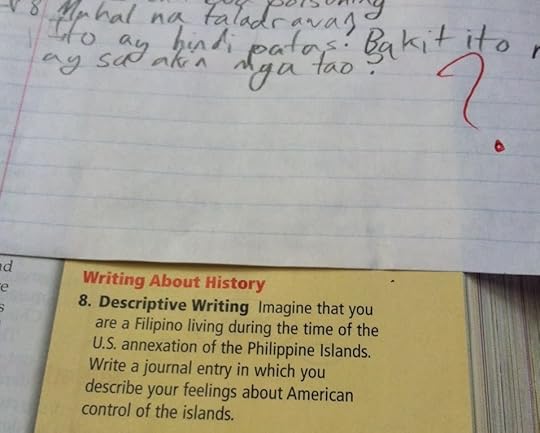 poisoning
8 Mahal na taladrawan
Ito ay hindi patas! Bakit ito
ay sa akin mga tao?
?
nd
e
s
Writing About History
8. Descriptive Writing Imagine that you
are a Filipino living during the time of the
U.S. annexation of the Philippine Islands.
Write a journal entry in which you
describe your feelings about American
control of the islands.